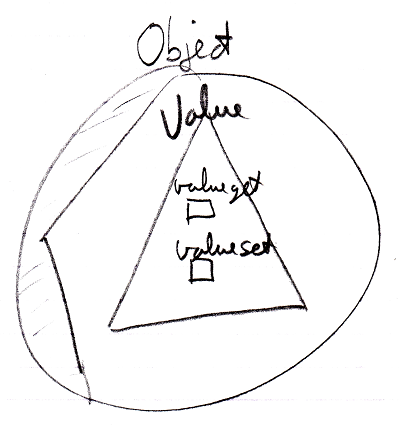 Object
Value
valueget
valueset